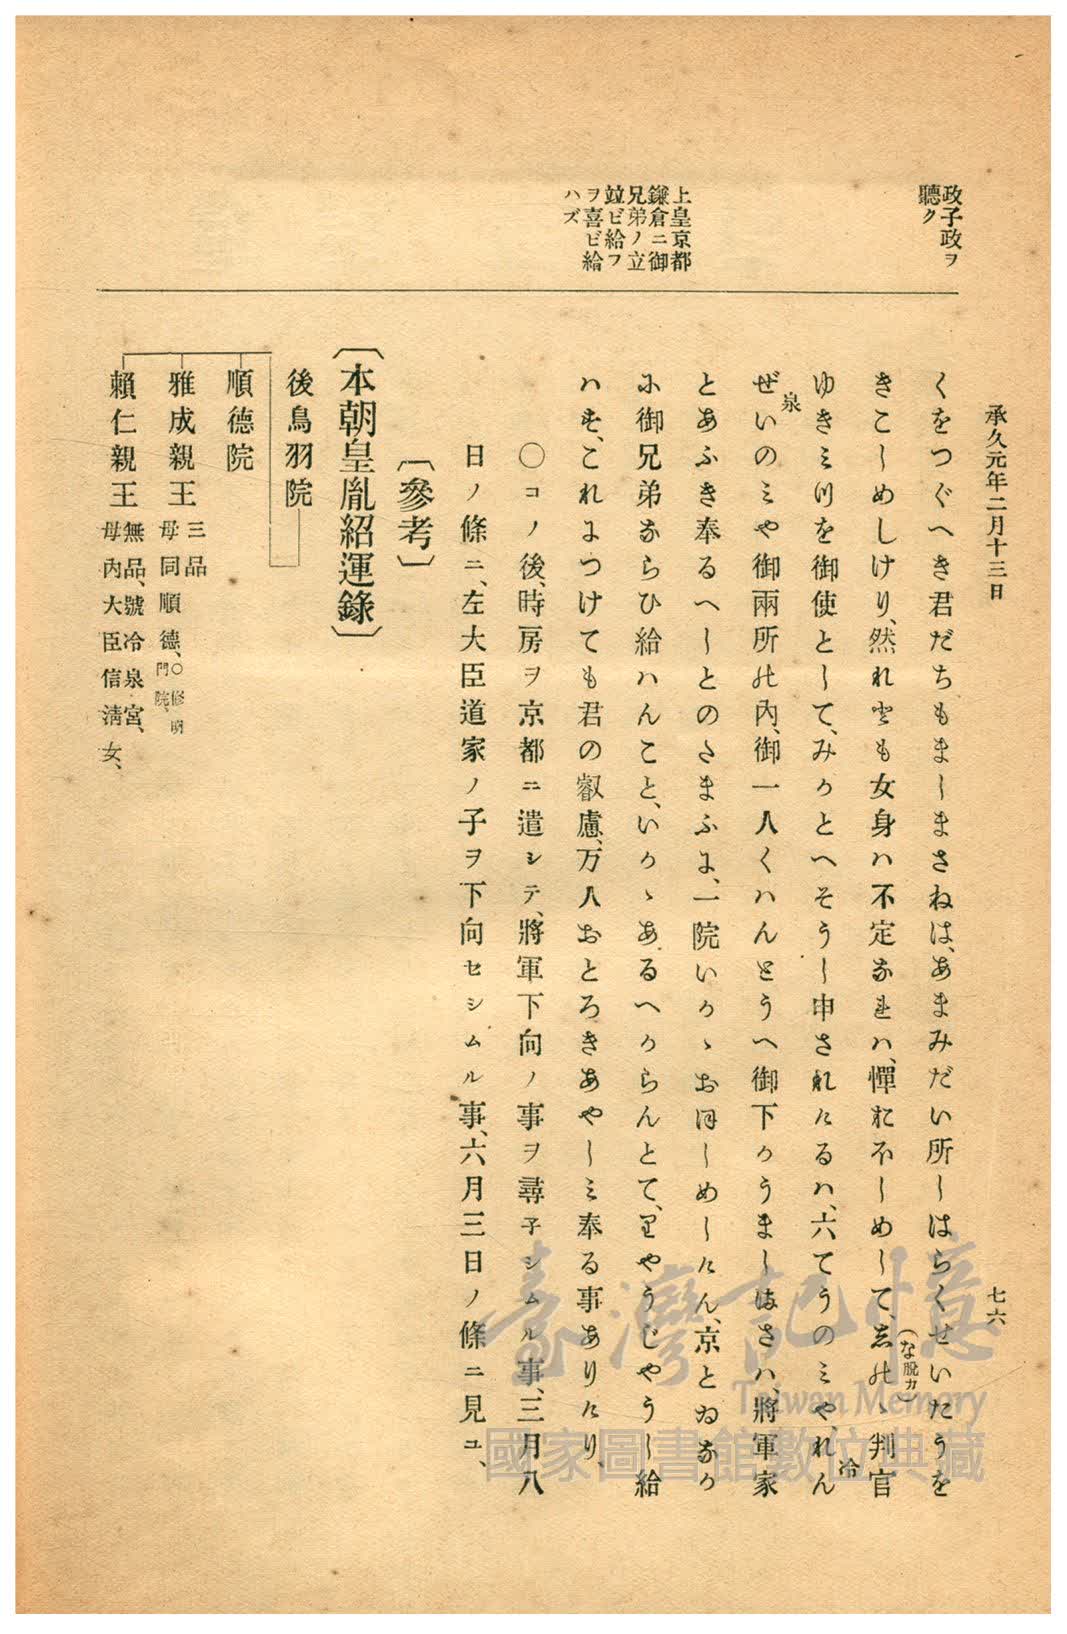 承久元年二月十三日
七六
政子政ヲ
聽ク
上皇京都
鎌倉ニ御
兄弟ノ立
竝ビ給フ
ヲ喜ビ給
ハズ
くをつぐへき君だちもましまさねは、あまみだい所しはらくせいたうを
きこしめしけり、然れ𪜈も女身ハ不定なれハ、憚おほしめして、志れ(な脱カ)ゝ判官
ゆきミつを御使として、みかとへそうし申されけるハ、六てうのミや、れん冷
ぜ泉いのミや御兩所の內、御一人くハんとうへ御下かうましまさハ、將軍家
とあふき奉るへしとのたまふに、一院いかゝおほしめしけん、京とゐなか
に御兄弟ならひ給ハんこと、いかゝあるへからんとて、里やうじやうし給
ハす、これにつけても君の叡慮、万人おとろきあやしミ奉る事ありけり、
〇コノ後、時房ヲ京都ニ遣シテ、將軍下向ノ事ヲ尋子シムル事、三月八
日ノ條ニ、左大臣道家ノ子ヲ下向セシムル事、六月三日ノ條ニ見ユ、
〔參考〕
〔本朝皇胤紹運錄〕
後鳥羽院
順德院
雅成親王 三品 母同順德、〇修明門院、
賴仁親王 無品、號冷泉宮、母內大臣信淸女、
臺灣記憶
Taiwan Memory
國家圖書館數位典藏